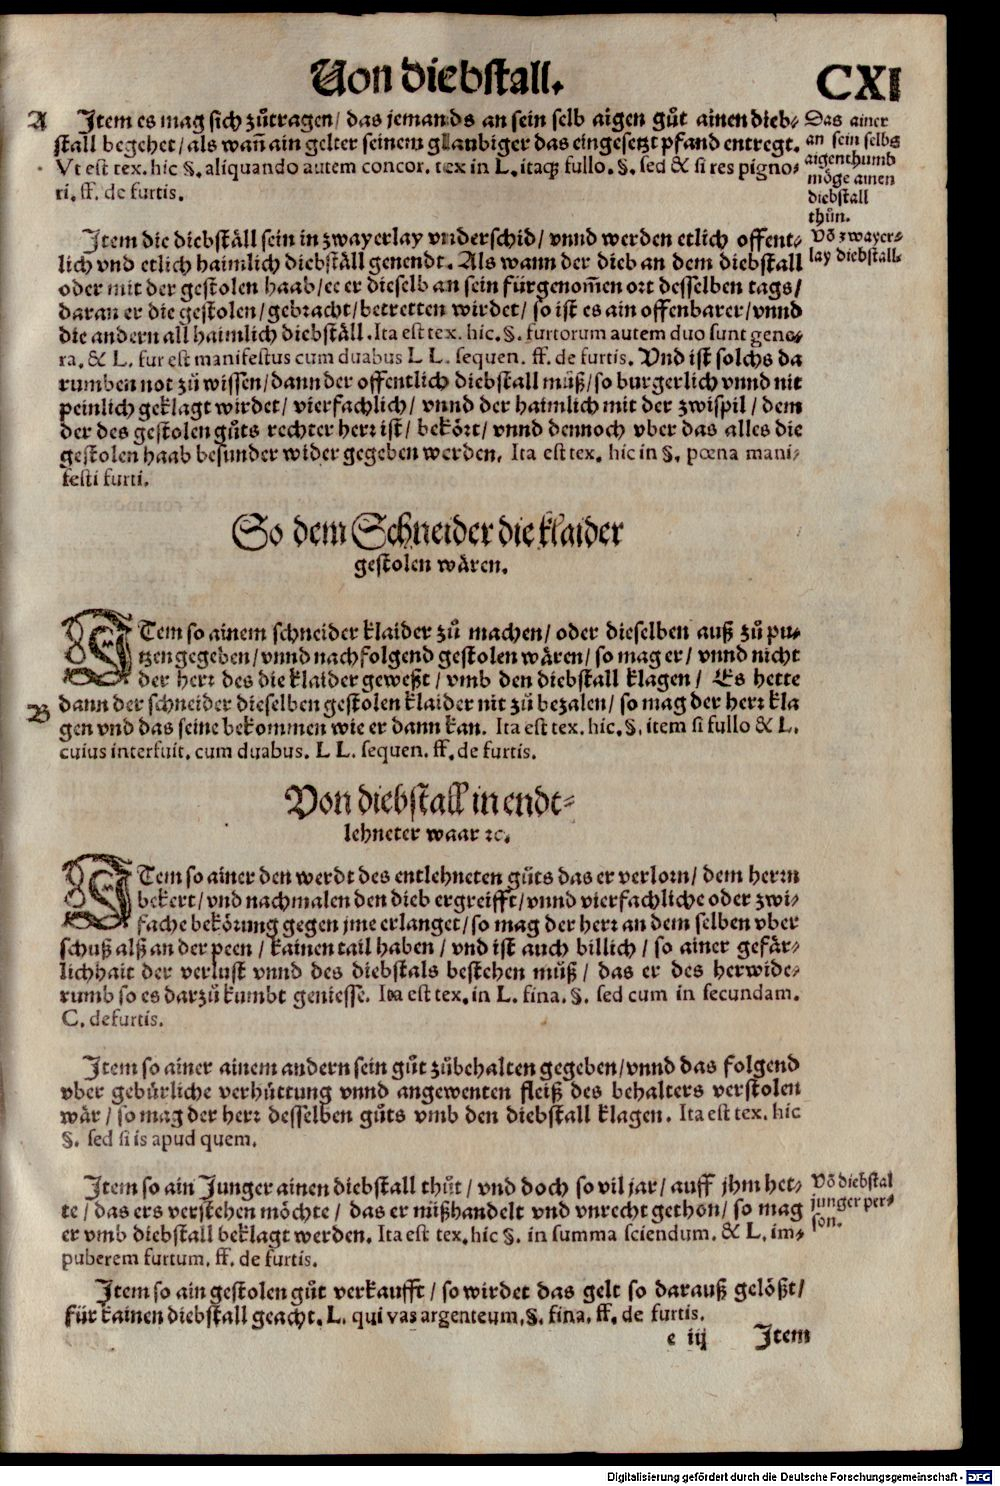 Von diebstall.
CXI
A Item es mag sich zůtragen/ das jemands an sein selb aigen gůt ainen dieb-
stall begehet/ als wañ ain gelter seinem glaubiger das eingesetzt pfand entregt.
Vt est tex. hic §. aliquando autem concor. tex in L. itaq; fullo. §. sed & si res pigno-
ri. ff. de furtis.
Das ainer
an sein selbs
aigenthumb
möge ainen
diebstall
thůn.
Item die diebställ sein in zwayerlay vnderschid/ vnnd werden etlich offent-
lich vnd etlich haimlich diebställ genendt. Als wann der dieb an dem diebstall
oder mit der gestolen haab/ ee er dieselb an sein fürgenom̃en ort desselben tags/
daran er die gestolen/ gebracht/ betretten wirdet/ so ist es ain offenbarer/ vnnd
die andern all haimlich diebställ. Ita est tex. hic. §. furtorum autem duo sunt gene-
ra. & L. fur est manifestus cum duabus L L. sequen. ff. de furtis. Vnd ist solchs da
rumben not zů wissen/ dann der offentlich diebstall můß/ so burgerlich vnnd nit
peinlich geklagt wirdet/ vierfachlich/ vnnd der haimlich mit der zwispil/ dem
der des gestolen gůts rechter herr ist/ bekört/ vnnd dennoch vber das alles die
gestolen haab besunder wider gegeben werden. Ita est tex. hic in §. pœna mani-
festi furti.
Võ zwayer-
lay diebstall.
So dem Schneider die klaider
gestolen wären.
ITem so ainem schneider klaider zů machen/ oder dieselben auß zů pu-
tzen gegeben/ vnnd nachfolgend gestolen wären/ so mag er/ vnnd nicht
der herr des die klaider geweßt/ vmb den diebstall klagen/ Es hette
B dann der schneider dieselben gestolen klaider nit zů bezalen/ so mag der herr kla
gen vnd das seine bekommen wie er dann kan. Ita est tex. hic. §. item si fullo & L.
cuius interfuit. cum duabus. L L. sequen. ff. de furtis.
Von diebstall in endt-
lehneter waar ꝛc.
ITem so ainer den werdt des entlehneten gůts das er verlorn/ dem herrn
bekert/ vnd nachmalen den dieb ergreifft/ vnnd vierfachliche oder zwi-
fache bekörung gegen jme erlanget/ so mag der herr an dem selben vber
schuß alß an der peen/ kainen tail haben/ vnd ist auch billich/ so ainer gefär-
lichhait der verlust vnnd des diebstals bestehen můß/ das er des herwide-
rumb so es darzů kumbt geniesse. Ita est tex. in L. fina. §. sed cum in secundam.
C. de furtis.
Item so ainer ainem andern sein gůt zůbehalten gegeben/ vnnd das folgend
vber gebürliche verhüttung vnnd angewenten fleiß des behalters verstolen
wär/ so mag der herr desselben gůts vmb den diebstall klagen. Ita est tex. hic
§. sed si is apud quem.
Item so ain Junger ainen diebstall thůt/ vnd doch so vil jar/ auff jhm het-
te/ das ers verstehen möchte/ das er mißhandelt vnd vnrecht gethon/ so mag
er vmb diebstall beklagt werden. Ita est tex. hic §. in summa sciendum. & L. im-
puberem furtum. ff. de furtis.
Võ diebstal
junger per-
son.
Item so ain gestolen gůt verkaufft/ so wirdet das gelt so darauß gelößt/
für kainen diebstall geacht. L. qui vas argenteum. §. fina. ff. de furtis.
e iij Item
Digitalisierung gefördert durch die Deutsche Forschungsgemeinschaft - DFG